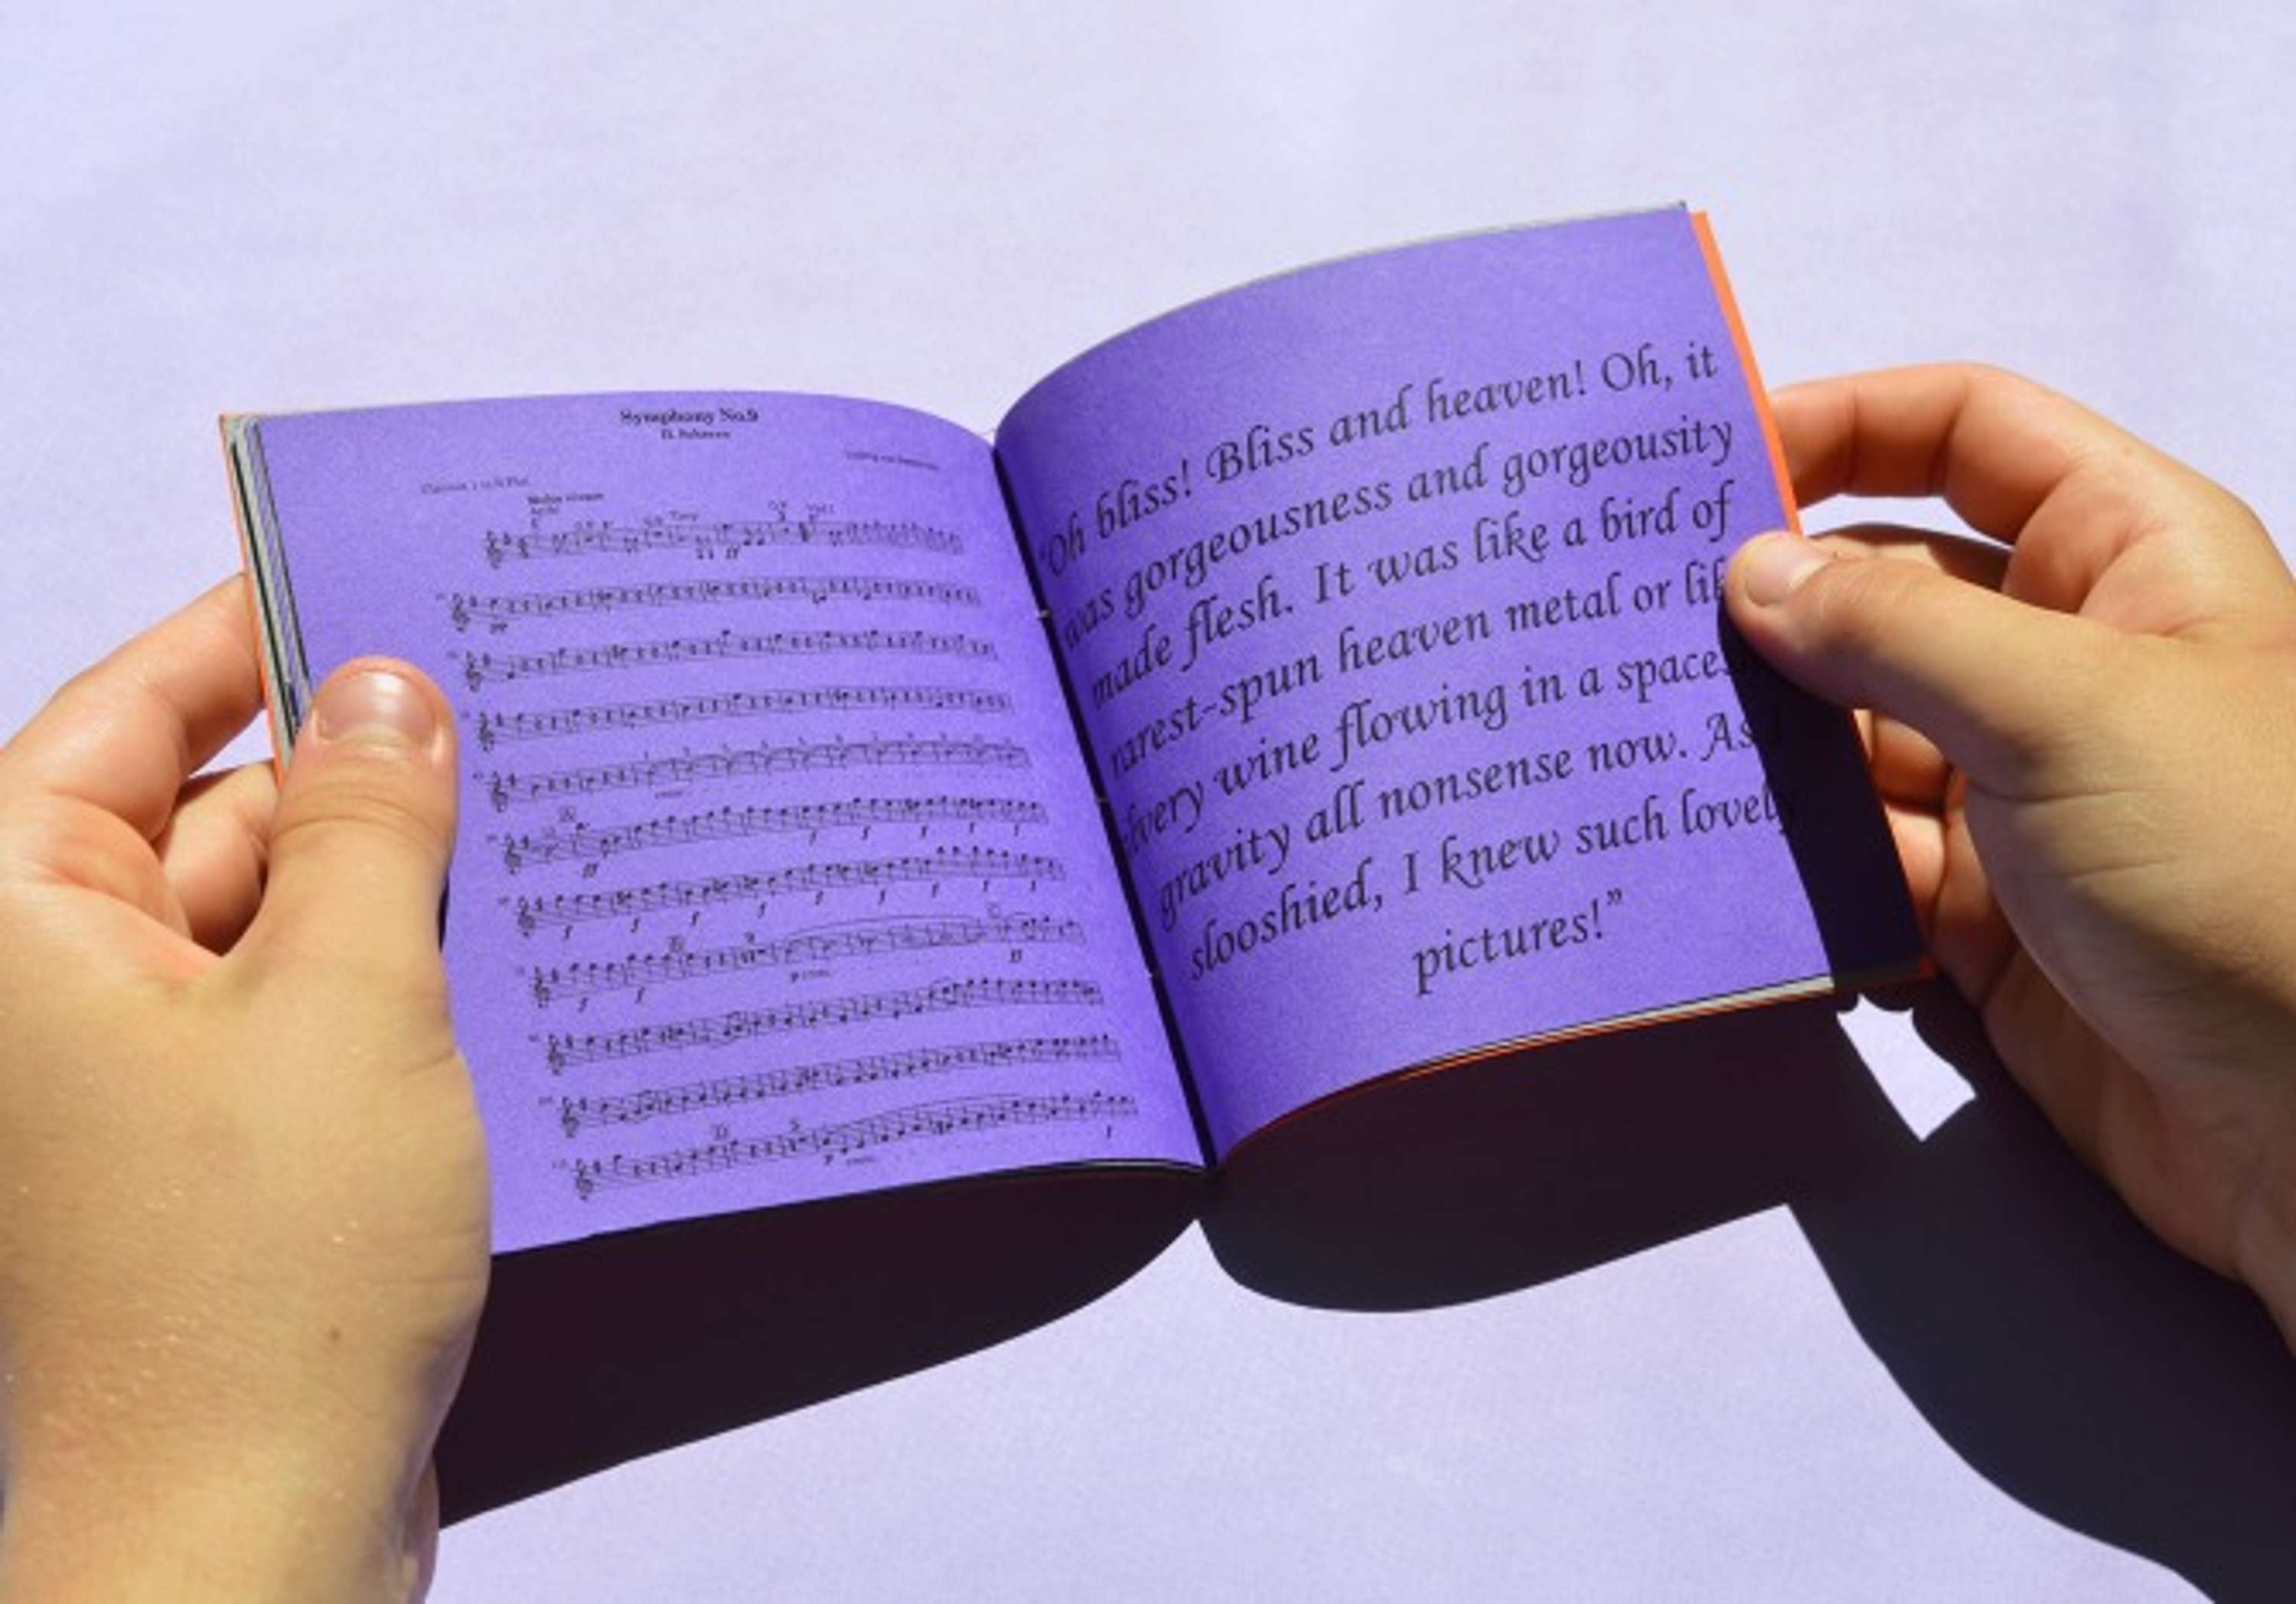 Symphony No.9
II. Scherzo
Clarinet 1 in B Flat
Molto vivace
"Oh bliss! Bliss and heaven! Oh, it
was gorgeousness and gorgeousity
made flesh. It was like a bird of
rarest-spun heaven metal or lik
lvery wine flowing in a spaces
gravity all nonsense now. As I
slooshied, I knew such lovely
pictures!"